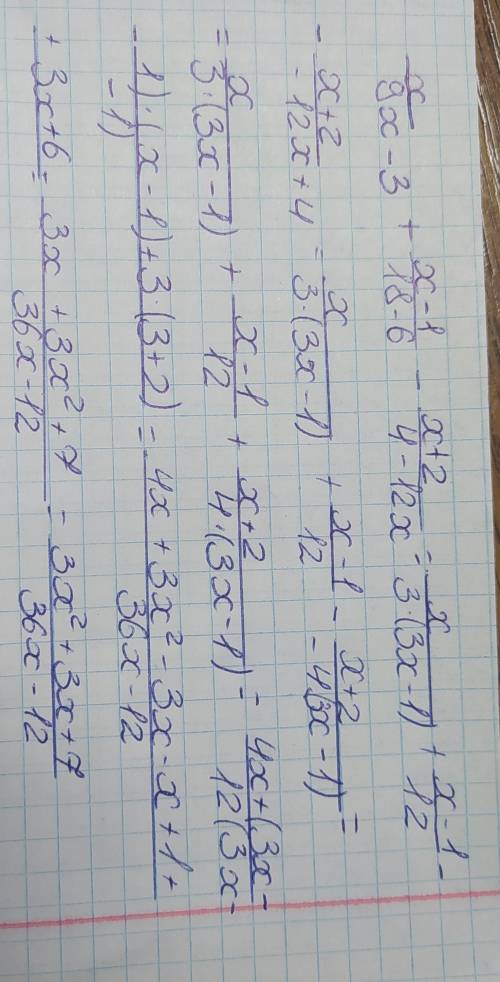 x/(9x-3) + (x-1)/(18-6) - (x+2)/(4-12x) = x/(3·(3x-1)) + (x-1)/12 -
- (x+2)/(-12x+4) = x/(3·(3x-1)) + (x-1)/12 - (x+2)/(-4(3x-1)) =
= x/(3·(3x-1)) + (x-1)/12 + (x+2)/(4·(3x-1)) = (4x+(3x-)/(12(3x-
- 1)·(x-1)+3·(3+2))/(-1) = (4x+3x²-3x-x+1+)/(36x-12)
+ 3x+6 = (3x+3x²+7)/(36x-12) = (3x²+3x+7)/(36x-12)